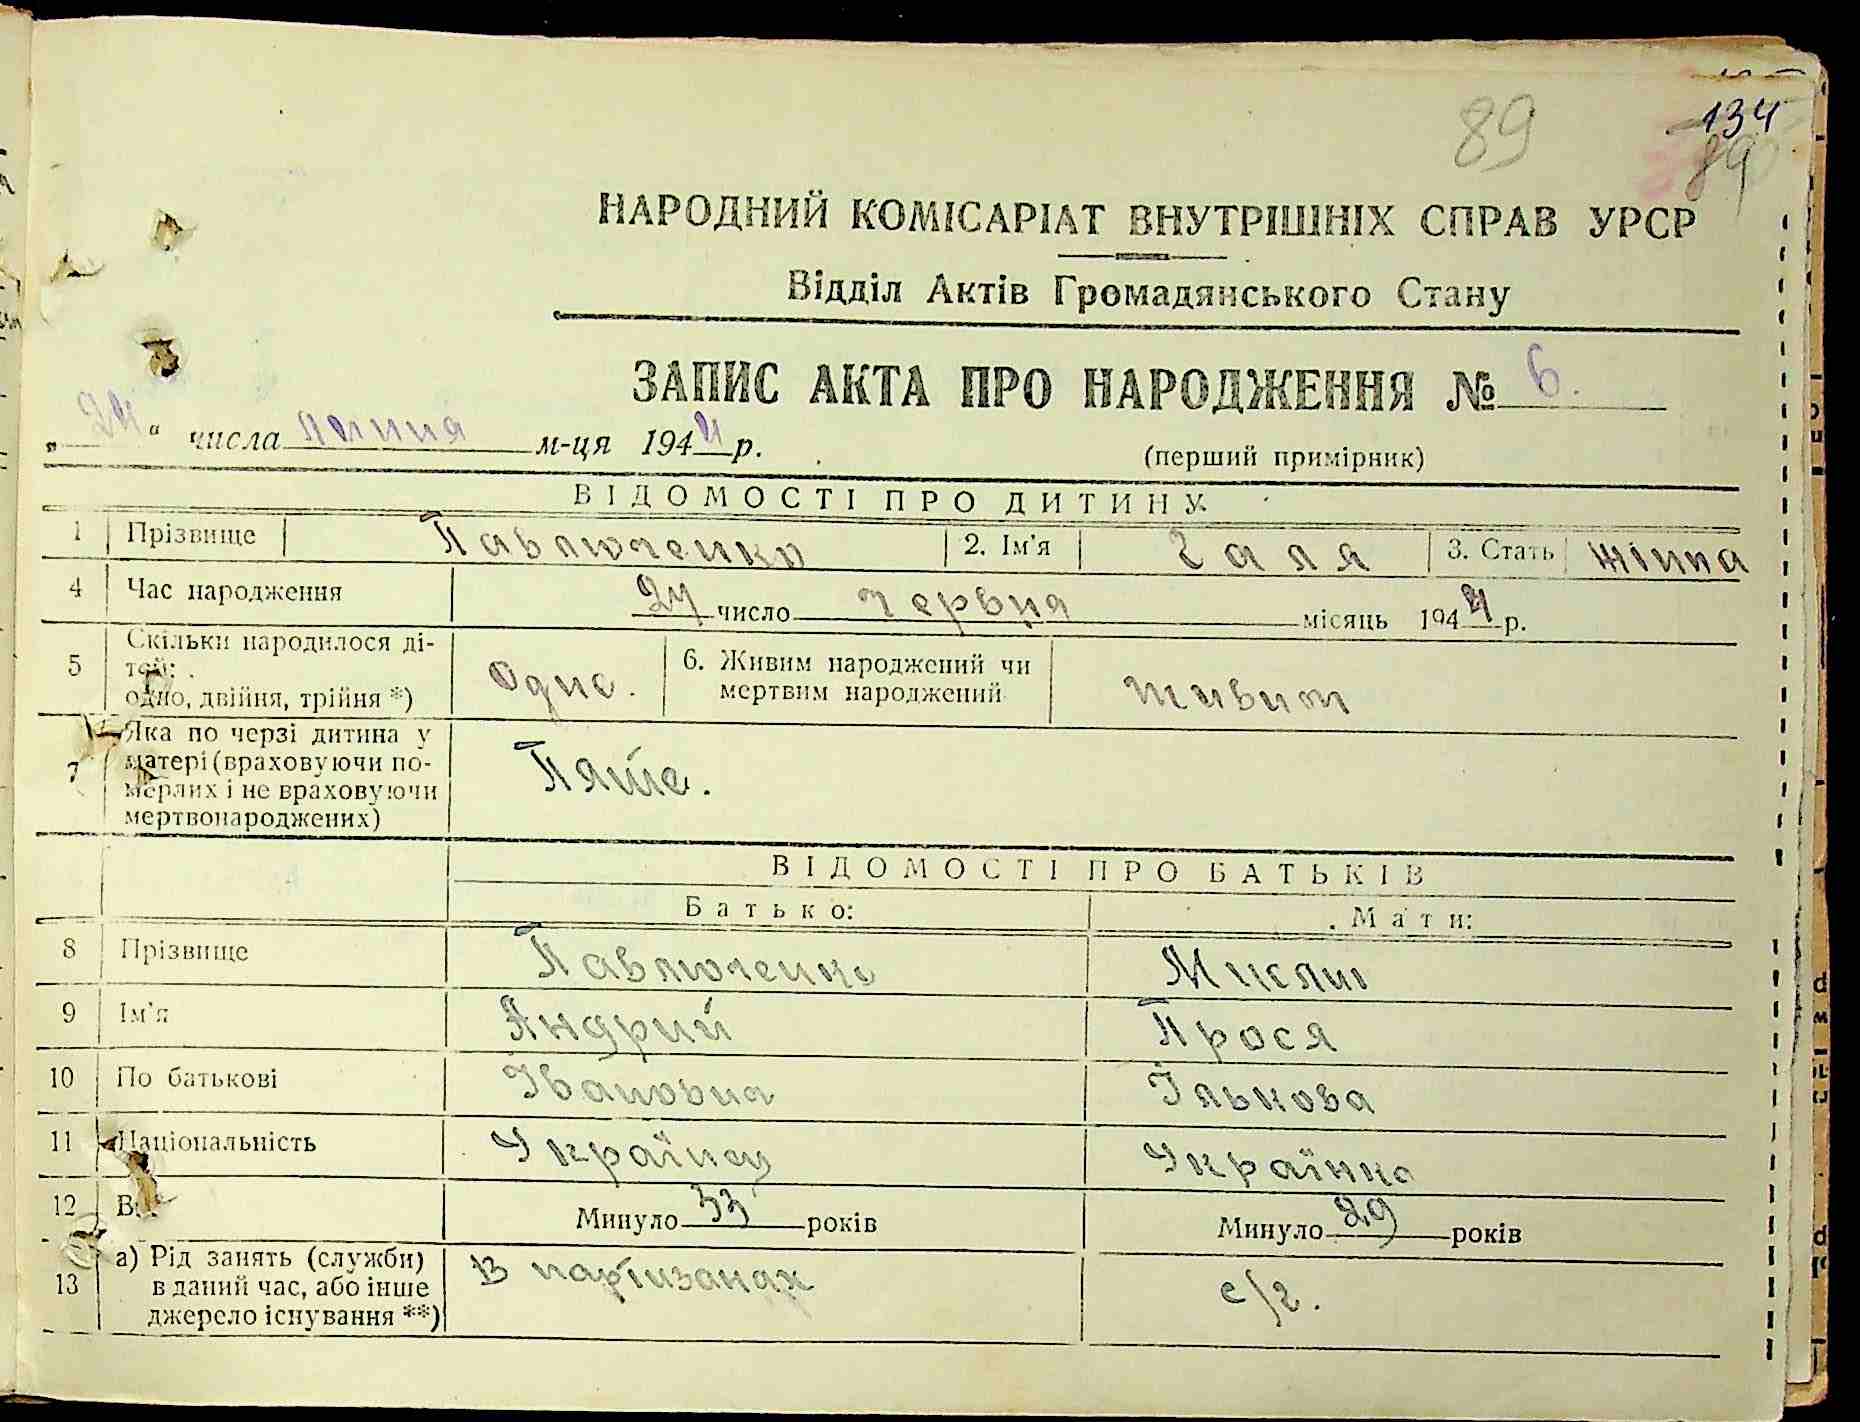 89
134
89
НАРОДНИЙ КОМІСАРІАТ ВНУТРІШНІХ СПРАВ УРСР
Відділ Актів Громадянського Стану
ЗАПИС АКТА ПРО НАРОДЖЕННЯ № 6.
„24“ числа липня м-ця 1944 р.
(перший примірник)
ВІДОМОСТІ ПРО ДИТИНУ
1 Прізвище Павлюченко 2. Ім'я Галя 3. Стать жінка
4 Час народження 24 число червня місяць 1944 р.
5 Скільки народилося ді-
тей:
одно, двійня, трійня *) Одне. 6. Живим народжений чи
мертвим народжений живим
7 Яка по черзі дитина у
матері (враховуючи по-
мерлих і не враховуючи
мертвонароджених) Пяте.
ВІДОМОСТІ ПРО БАТЬКІВ
Батько: Мати:
8 Прізвище Павлюченко
9 Ім'я Андрий Прося
10 По батькові Ількова
11 Національність Українец Українка
12 Минуло 33 років Минуло 29 років
13 а) Рід занять (служби)
в даний час, або інше
джерело існування **) В партизанах с/г.